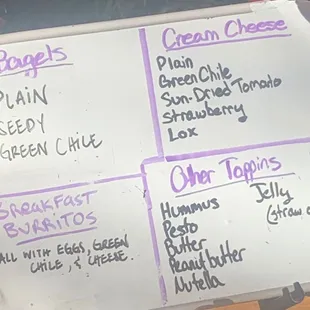 Bagels
PLAIN
SEEDY
GREEN CHILE
Cream Cheese
Plain
Green Chile
Sun-Dried Tomato
Strawberry
Lox
BREAKFAST
BURRITOS
ALL WITH EGGS, GREEN
CHILE, & CHEESE
Other Toppins
Hummus
Pesto
Butter
Peanut butter
Nutella
Jelly